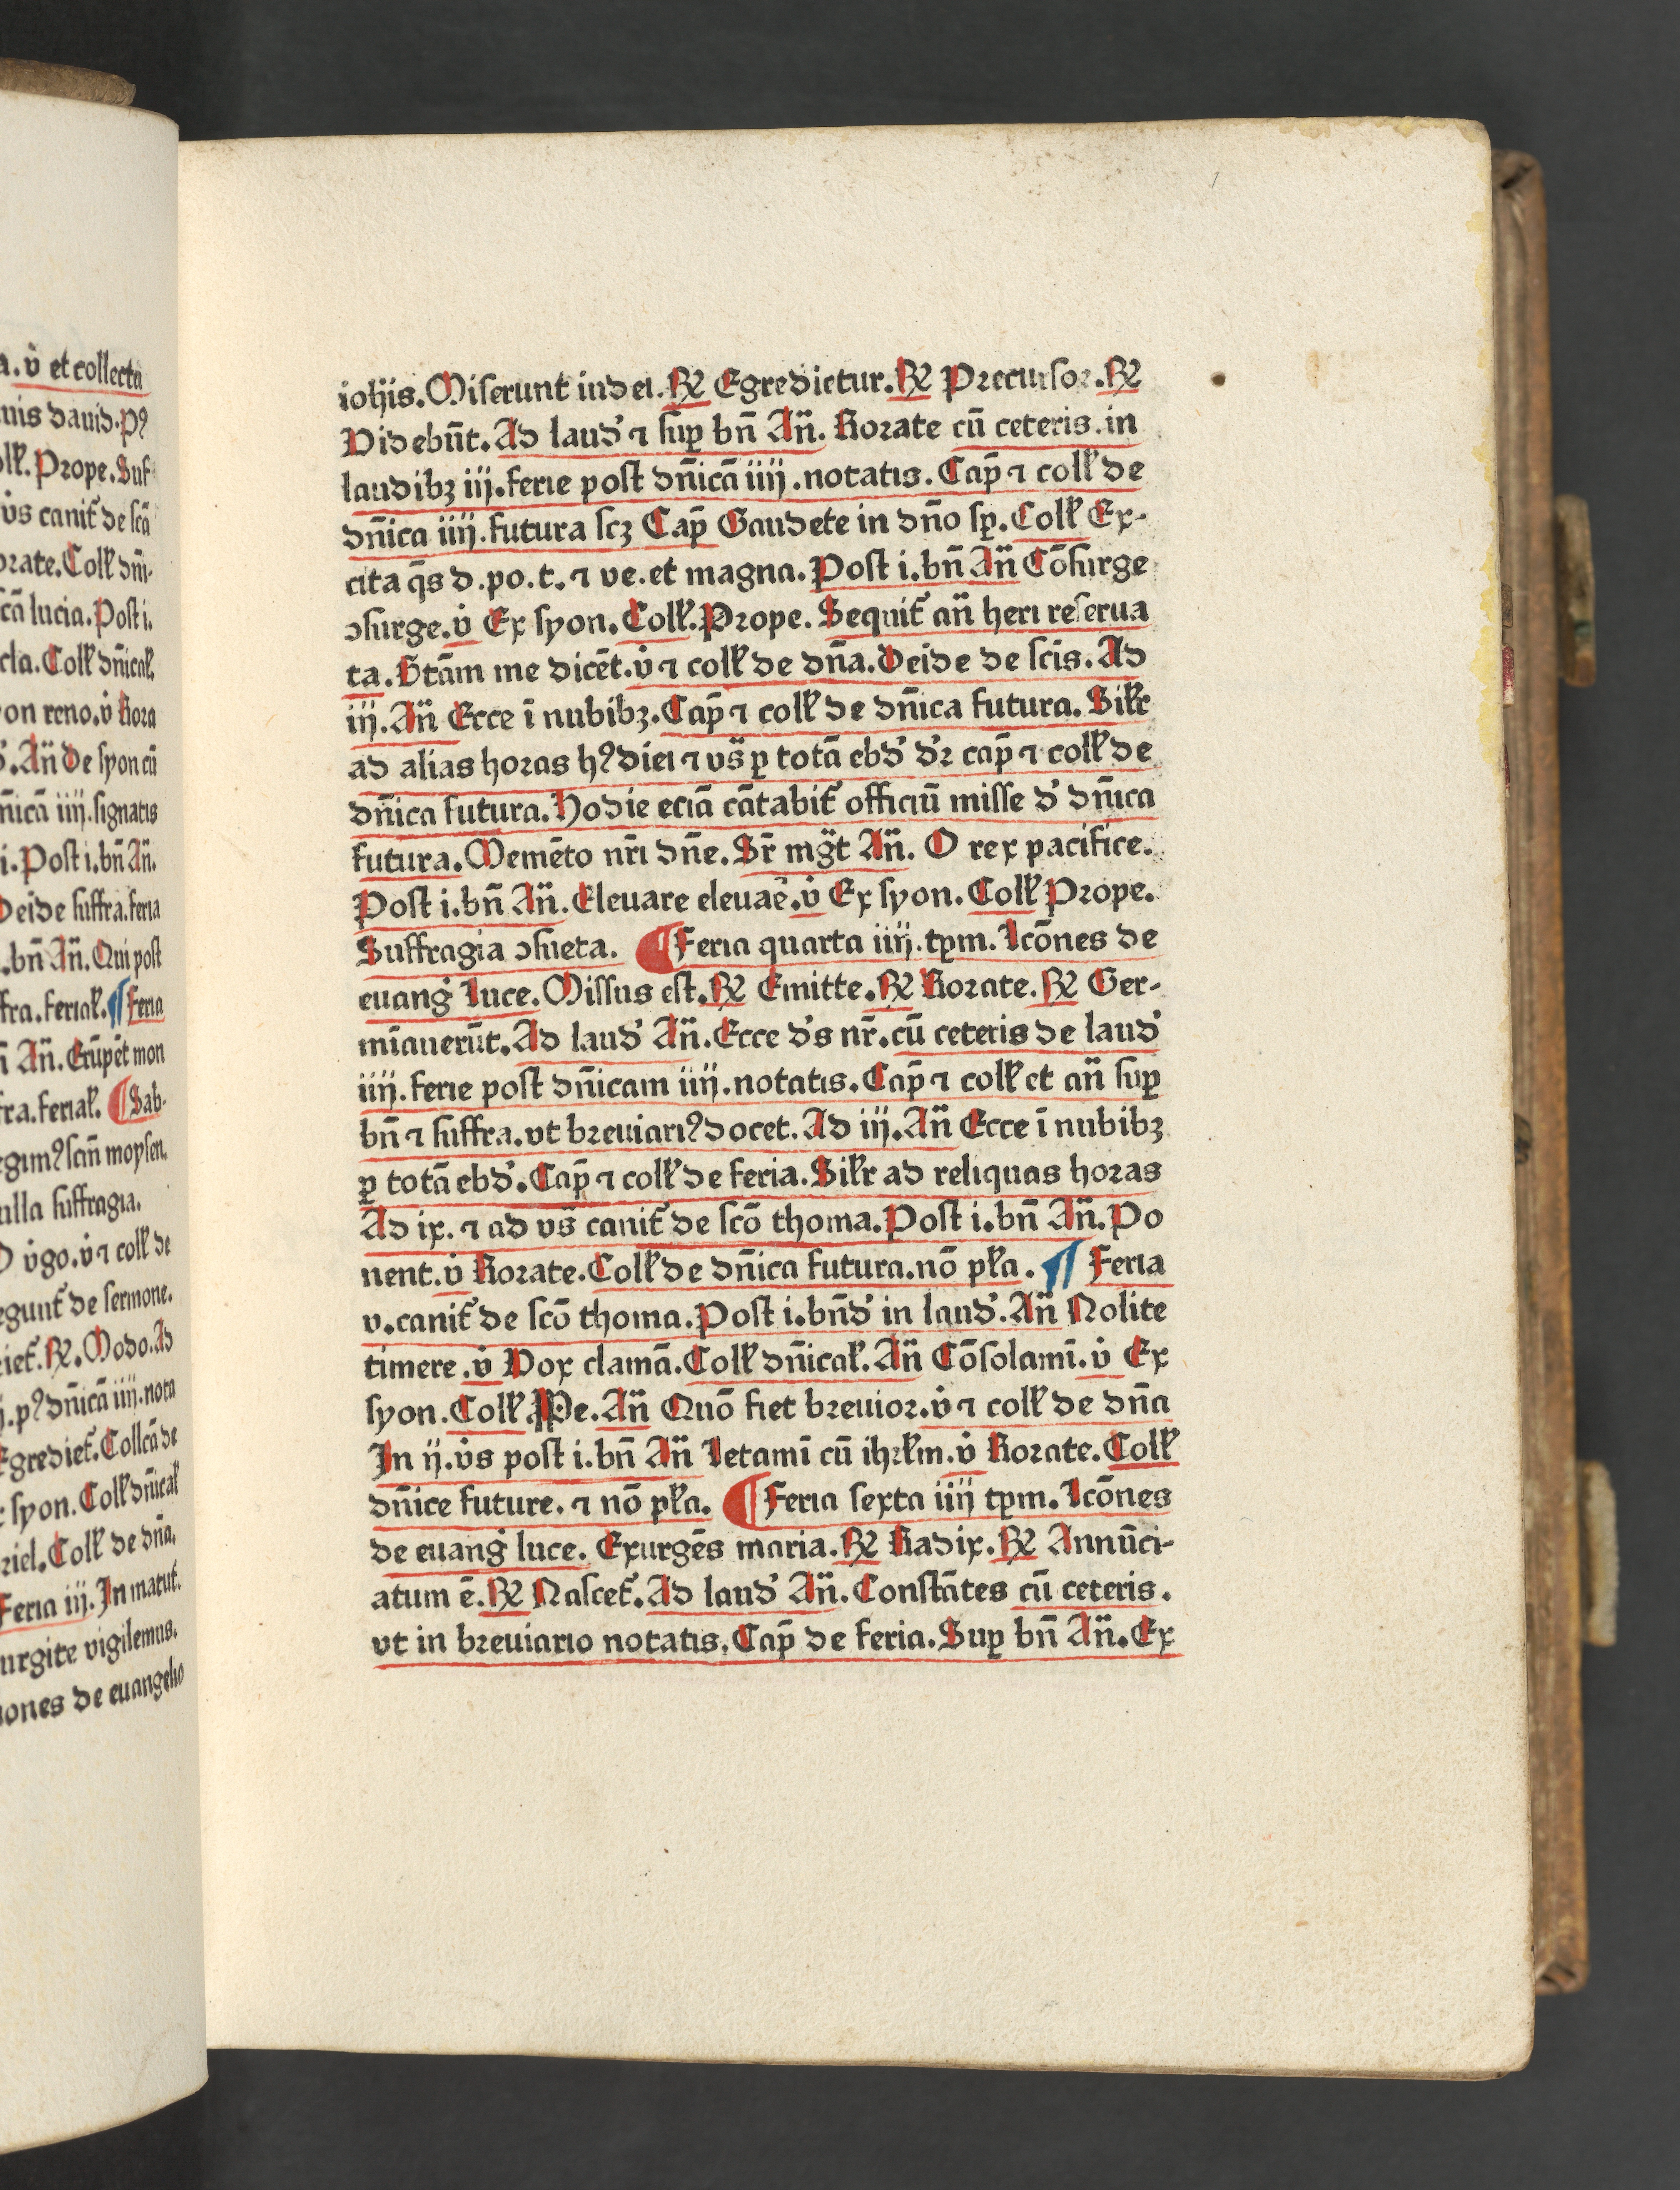 a. v̇ et collecta
nis dauid. pꝰ
oll̃. Prope. Suf
v̇s canit̃ de scã
orate. Coll̃ dñi-
cã lucia. Post i.
cla. Coll̃ dñical̃.
yon reno. v̇ Rora
An̄ De syon cũ
ñicã iiij. signatis
i. Post i. bñ An̄.
Deide suffra. feria
. bñ An̄. Qui post
ffra. ferial̃. ¶ Feria
An̄. Erũpẽt mon
fra. ferial̃. ¶ Sab-
egimꝰ scm̃ moysen.
ulla suffragia.
O v̇go. v̇ ⁊ coll̃ de
egunt̃ de sermone.
iet̃. ℞. Modo. Ad
ij. pꝰ dñicã iiij. nota
Egrediet̃. Collcã de
syon. Coll̃ dñical̃
riel. Coll̃ de dña.
Feria iij. In matut̃.
urgite vigilemus.
iones de euangelio
iohis. Miserunt iudei. ℞ Egredietur. ℞ Precursor. ℞
Videbũt. Ad laud̛ ⁊ suꝑ bñ An̄. Rorate cũ ceteris. in
laudibꝫ iij. ferie post dñicã iiij. notatis. Cap̃ ⁊ coll̃ de
dñica iiij. futura scꝫ Cap̃ Gaudete in dño sꝑ. Coll̃ Ex-
cita q̃s d. po. t. ⁊ ve. et magna. Post i. bñ An̄ Cõsurge
ꝯsurge. v̇ Ex syon. Coll̃. Prope. Sequit̃ an̄ heri reserua
ta. Btãm me dicẽt. v̇ ⁊ coll̃ de dña. Deide de scis. Ad
iij. An̄ Ecce ĩ nubibꝫ. Cap̃ ⁊ coll̃ de dñica futura. Sil̃r
ad alias horas hꝰ diei ⁊ vs̃ ꝑ totã ebd̛ d̛r cap̃ ⁊ coll̃ de
dñica futura. Hodie eciã cãtabit̃ officiũ misse d̛ dñica
futura. Memẽto nr̃i dñe. Sr̃ mg̃t An̄. O rex pacifice.
Post i. bñ An̄. Eleuare eleuaẽ. v̇ Ex syon. Coll̃ Prope.
Suffragia ꝯsueta. ¶ Feria quarta iiij. tꝑm. Lcõnes de
euang̛ luce. Missus est. ℞ Emitte. ℞ Rorate. ℞ Ger-
mĩauerũt. Ad laud̛ An̄. Ecce d̛s nr̃. cũ ceteris de laud̛
iiij. ferie post dñicam iiij. notatis. Cap̃ ⁊ coll̃ et an̄ suꝑ
bñ ⁊ suffra. vt breuiariꝰ docet. Ad iij. An̄ Ecce ĩ nubibꝫ
ꝑ totã ebd̛. Cap̃ ⁊ coll̃ de feria. Sil̃r ad reliquas horas
Ad ix. ⁊ ad vs̃ canit̃ de scõ thoma. Post i. bñ An̄. Po
nent. v̇ Rorate. Coll̃ de dñica futura. nõ pl̃a. ¶ Feria
v. canit̃ de scõ thoma. Post i. bñd̛ in laud̛. An̄ Nolite
timere. v̇ Vox clamã. Coll̃ dñical̃. An̄ Cõsolamĩ. v̇ Ex
syon. Coll̃ Ꝓpe. An̄ Quõ fiet breuior. v̇ ⁊ coll̃ de dña
In ij. v̇s post i. bñ An̄ Letamĩ cũ ihrl̃m. v̇ Rorate. Coll̃
dñice future. ⁊ nõ pl̃a. ¶ Feria sexta iiij tꝑm. Lcõnes
de euang̛ luce. Exurgẽs maria. ℞ Radix. ℞ Annũci-
atum ẽ. ℞ Nascet̃. Ad laud̛ An̄. Constãtes cũ ceteris.
vt in breuiario notatis. Cap̃ de feria. Suꝑ bñ An̄. Ex